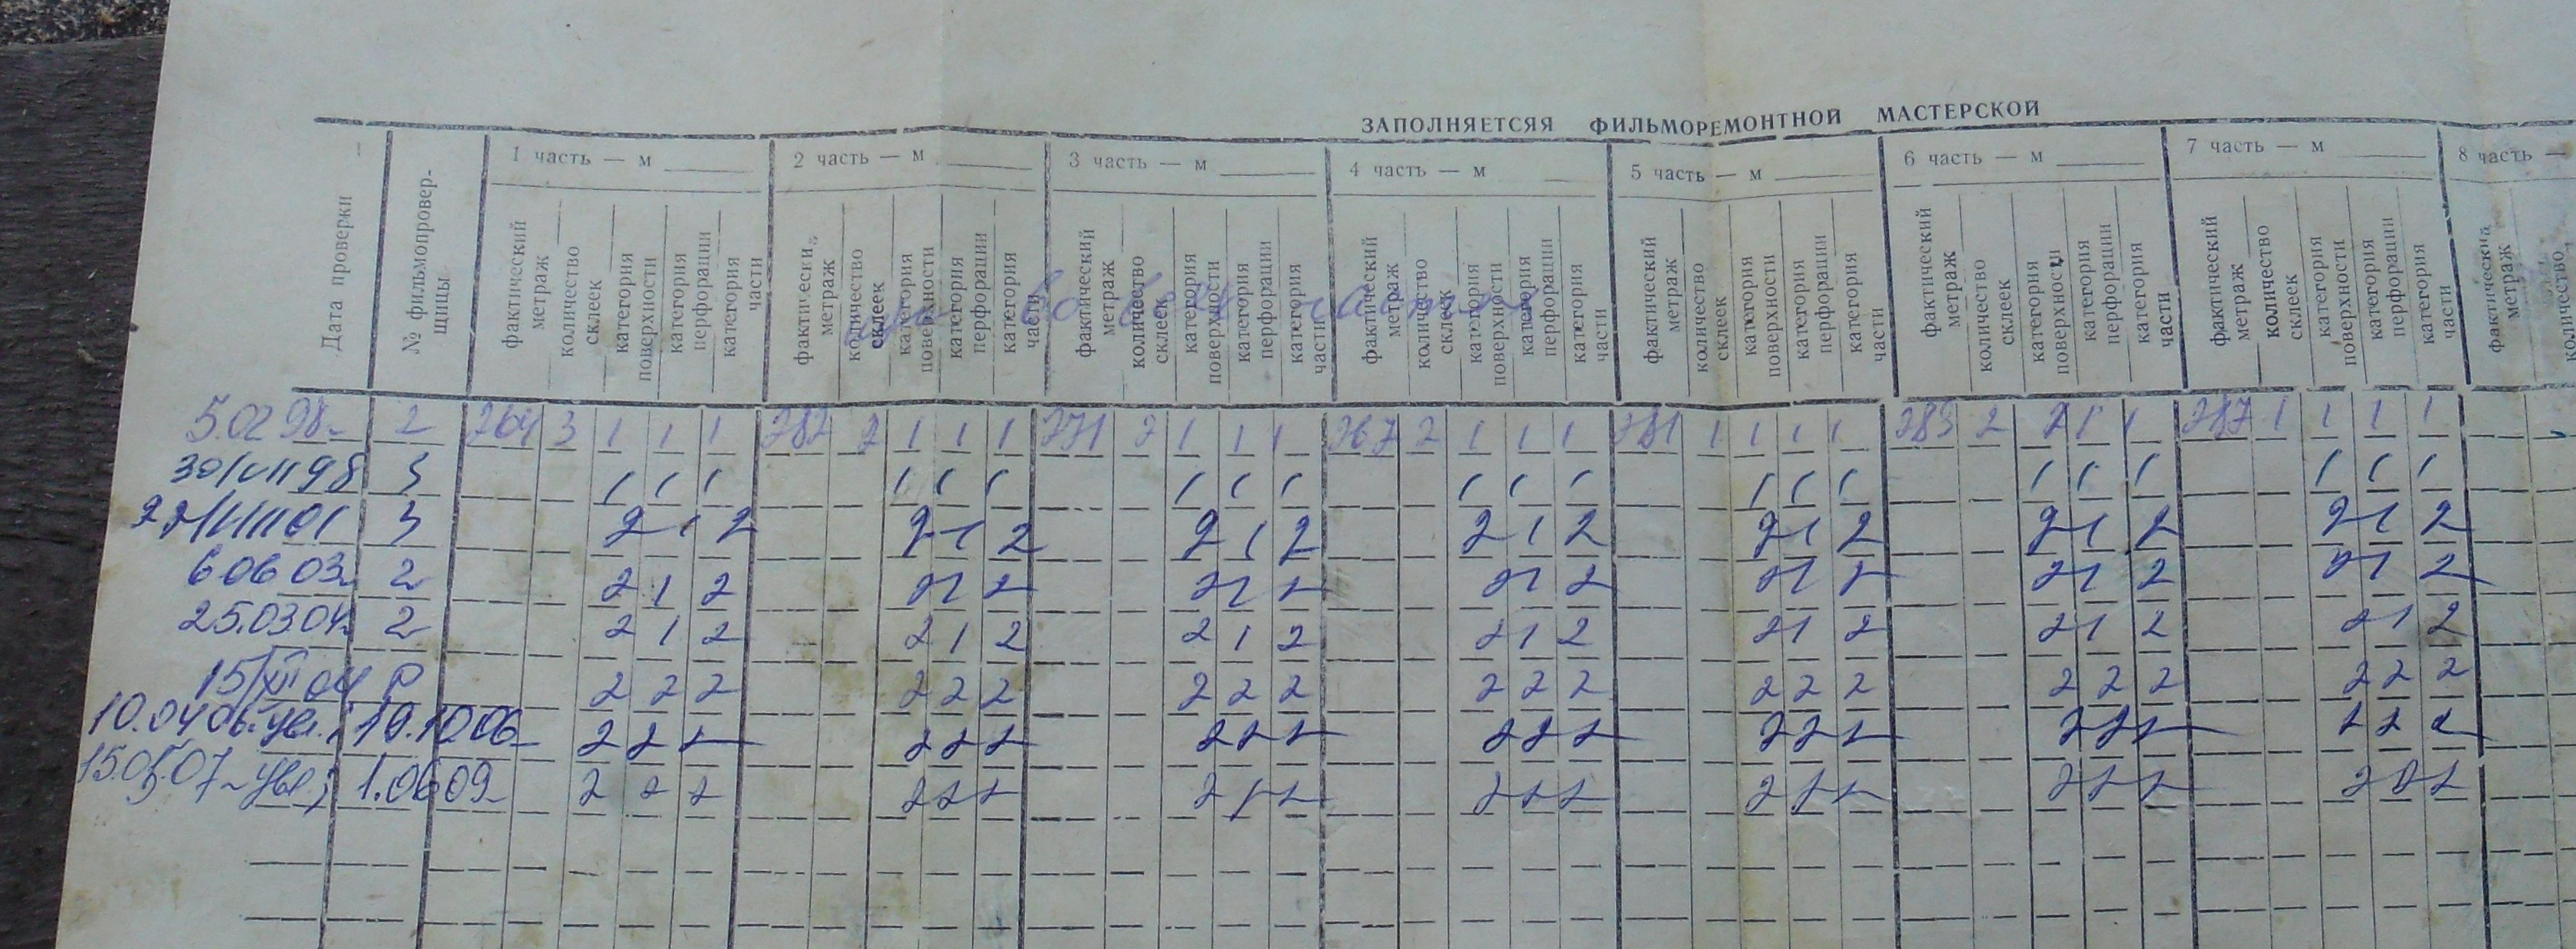 ЗАПОЛНЯЕТСЯЯ ФИЛЬМОРЕМОНТНОЙ МАСТЕРСКОЙ
1 часть — м 2 часть — м 3 часть — м 4 часть — м 5 часть — м 6 часть — м 7 часть — м 8 часть —
Дата проверки № фильмопровер-щицы фактический метраж количество склеек категория поверхности категория перфорации категория части фактически. метраж количество склеек категория поверхности категория перфорации категория части фактический метраж количество склеек категория поверхности категория перфорации категория части фактический метраж количество склеек категория поверхности категория перфорации категория части фактический метраж количество склеек категория поверхности категория перфорации категория части фактический метраж количество склеек категория поверхности категория перфорации категория части фактический метраж количество склеек категория поверхности категория перфорации категория части метраж количество
во всех частях
5.02 98 2 264 3 1 1 1 282 2 1 1 1 271 2 1 1 1 267 2 1 1 1 281 1 1 1 1 283 2 2 1 1 287 1 1 1 1
30/VII 98 3 1 1 1 1 1 1 1 1 1 1 1 1 1 1 1 1 1 1 1 1 1
01 3 2 1 2 2 1 2 2 1 2 2 1 2 2 1 2 2 1 2 2 1 2
6 06 03 2 2 1 2 2 1 2 2 1 2 2 1 2 2 1 2 2 1 2 2 1 2
25.03 04 2 2 1 2 2 1 2 2 1 2 2 1 2 2 1 2 2 1 2 2 1 2
15/XII 04 Р 2 2 2 2 2 2 2 2 2 2 2 2 2 2 2 2 2 2 2 2 2
10.04 06 ув.; 19.10 06 2 2 2 2 2 2 2 2 2 2 2 2 2 2 2 2 2 2 2 2 2
15.05.07 ув.; 1.06 09 2 2 2 2 2 2 2 2 2 2 2 2 2 2 2 2 2 2 2 2 2